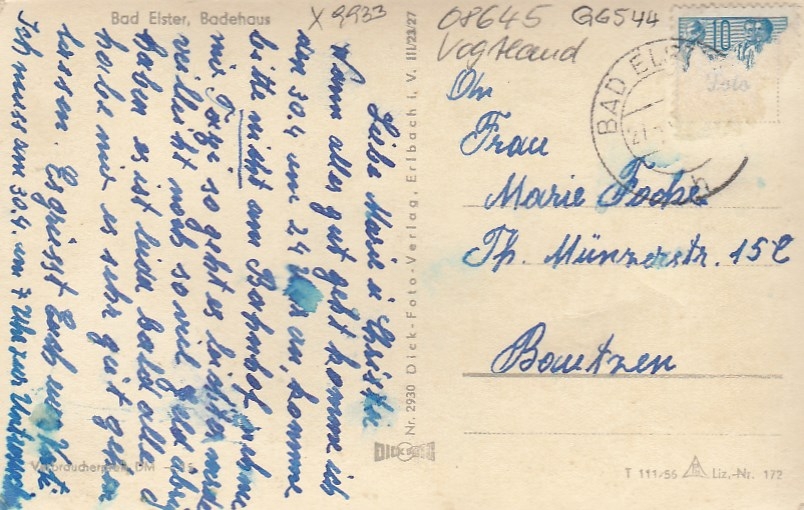 Bad Elster, Badehaus
X 9933
08645 GG544
Vogtland
10
BAD ELSTER
Liebe Marie u. Christa
Wenn alles gut geht komme ich
am 30.4 um 24 Uhr an, komme
bitte nicht am Bahnhof, nehme
mir Taxe so geht es leichter
vielleicht noch so viel Geld
haben es ist leider bald alle
habe mir es sehr gut gehen
lassen. Es grüsst Euch
Ich muss am 30.4. um 7 Uhr zur
Nr. 2930 Dick-Foto-Verlag, Erlbach i. V. III/23/27
DICK
An
Frau
Marie
Th. Münzerstr. 15
Bautzen
Verbraucherpreis DM
T 111/56 Liz.-Nr. 172